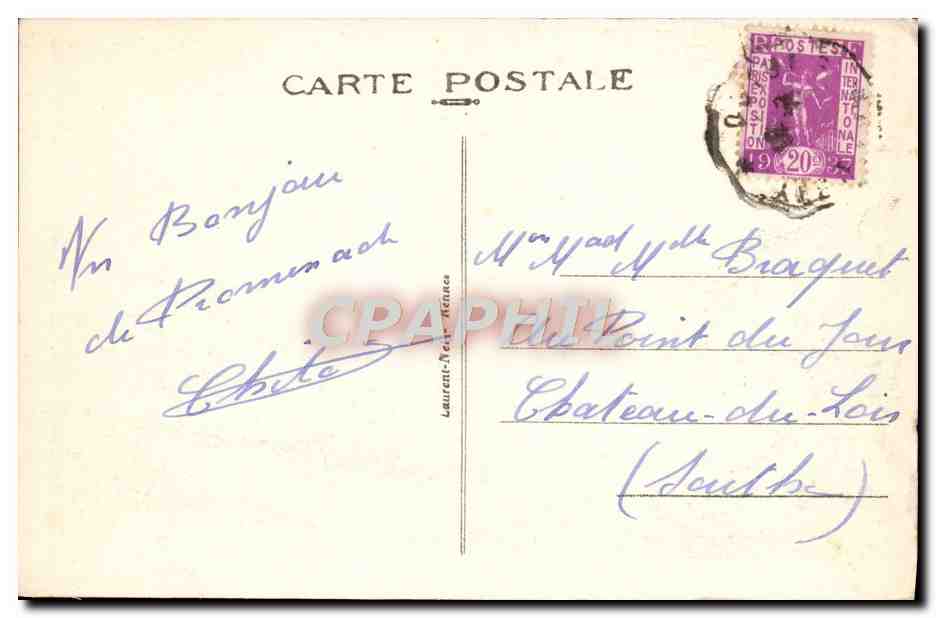 CARTE POSTALE
RF POSTES
PARIS EXPOSITION
INTERNATIONALE
1937
20c
Un Bonjour
de Promenade
Laurent-Nel, Rennes
CPAPHIL
Mr Mad Melle Braquet
Au Point du Jour
Chateau-du-Loir
(Sarthe)